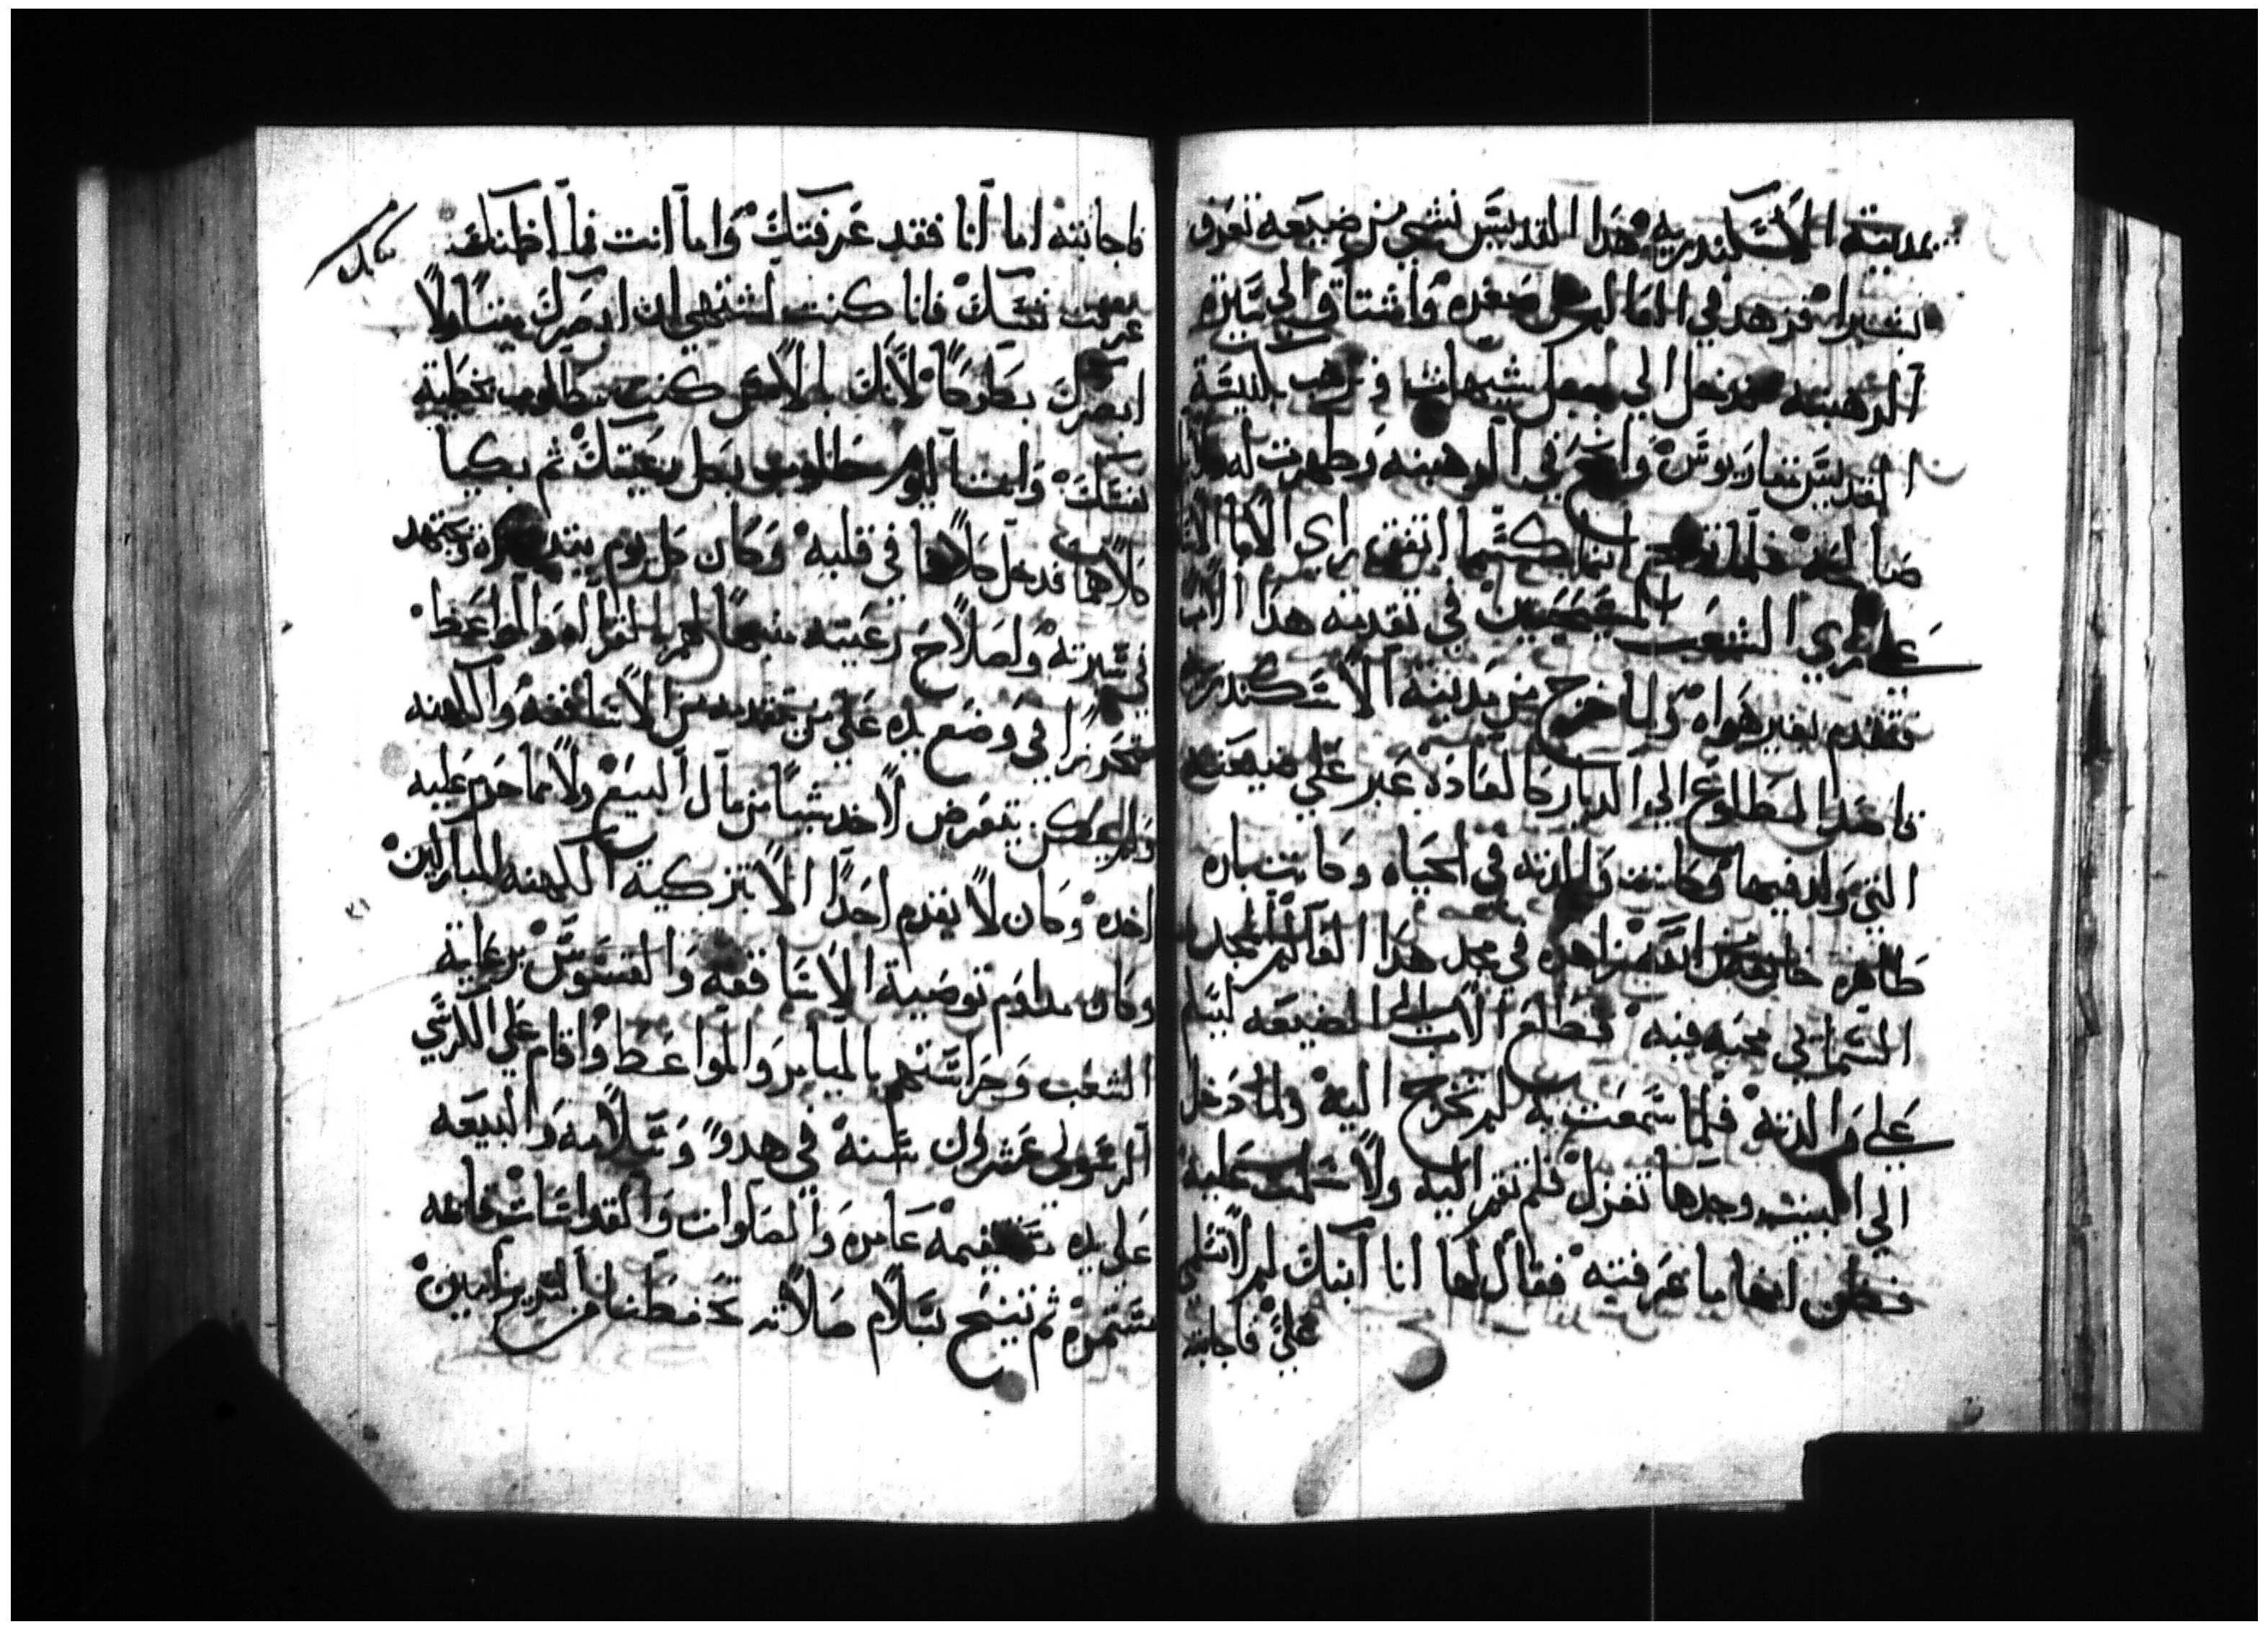 بمدينة الاسكندريه هدا القديس نشي من ضيعه تعرف
فزهد في العالم من صغره واشتاق الي سيرة
الرهبنه فدخل الي جبل شيهات وترهب بكنيسة
القديس مقاريوس وانجح في الرهبنه وظهرت له
صالحه فلما تنيح انبا اتفق راي الابا
علي راي الشعب المجتمعين في تقدمة هدا الاب
فتقدم بغير هواه ولما خرج من مدينة الاسكندريه
قاصدا لمطلوع الي الديار كالعاده عبر علي ضيعته
التي ولد فيها وكانت والدته في الحياه وكانت باره
طاهره خايفه من الله زاهده في مجد هدا العالم
محبه فيه فطلع الاب الي الضيعه ليسلم
علي والدته فلما سمعت به لم تخرج اليه ولما دخل
الي البيت وجدها تغزل فلم تقم اليه ولا سلمت عليه
فظن انها ما عرفته فقال لها انا ابنك لم لا تسلمي
علي فاجابته
فاجابته اما انا فقد عرفتك واما انت فما اظنك
عرفت نفسك فانا كنت اشتهي ان ابصرك ميتا ولا
ابصرك بطركا لانك بالامس كنت مطلوب بخطية
نفسك وانت اليوم مطلوب بكل رعيتك ثم بكيا
كلاهما فدخل كلامها في قلبه وكان كل يوم يتدكره ويجتهد
في سيرته ولصلاح رعيته منبها لهم بالقراه والمواعظ
متحرزا في وضع يده علي من يتقدم من الاساقفه والكهنه
ولم يكن يتعرض لاخد شيا من مال البيع ولا مما حرم عليه
اخده وكان لا يقدم احدا الا بتزكية الكهنه المباركين
وكان مداوم توصية الاساقفه والقسوس برعاية
الشعب وحراستهم بالميامر والمواعظ واقام علي الكرسي
الرسولي عشرون سنه في هدو وسلامه والبيعه
علي يده مستقيمه عامره والصلوات والقداسات قايمه
مستمره ثم تنيح بسلام صلاته تحفظنا من امين